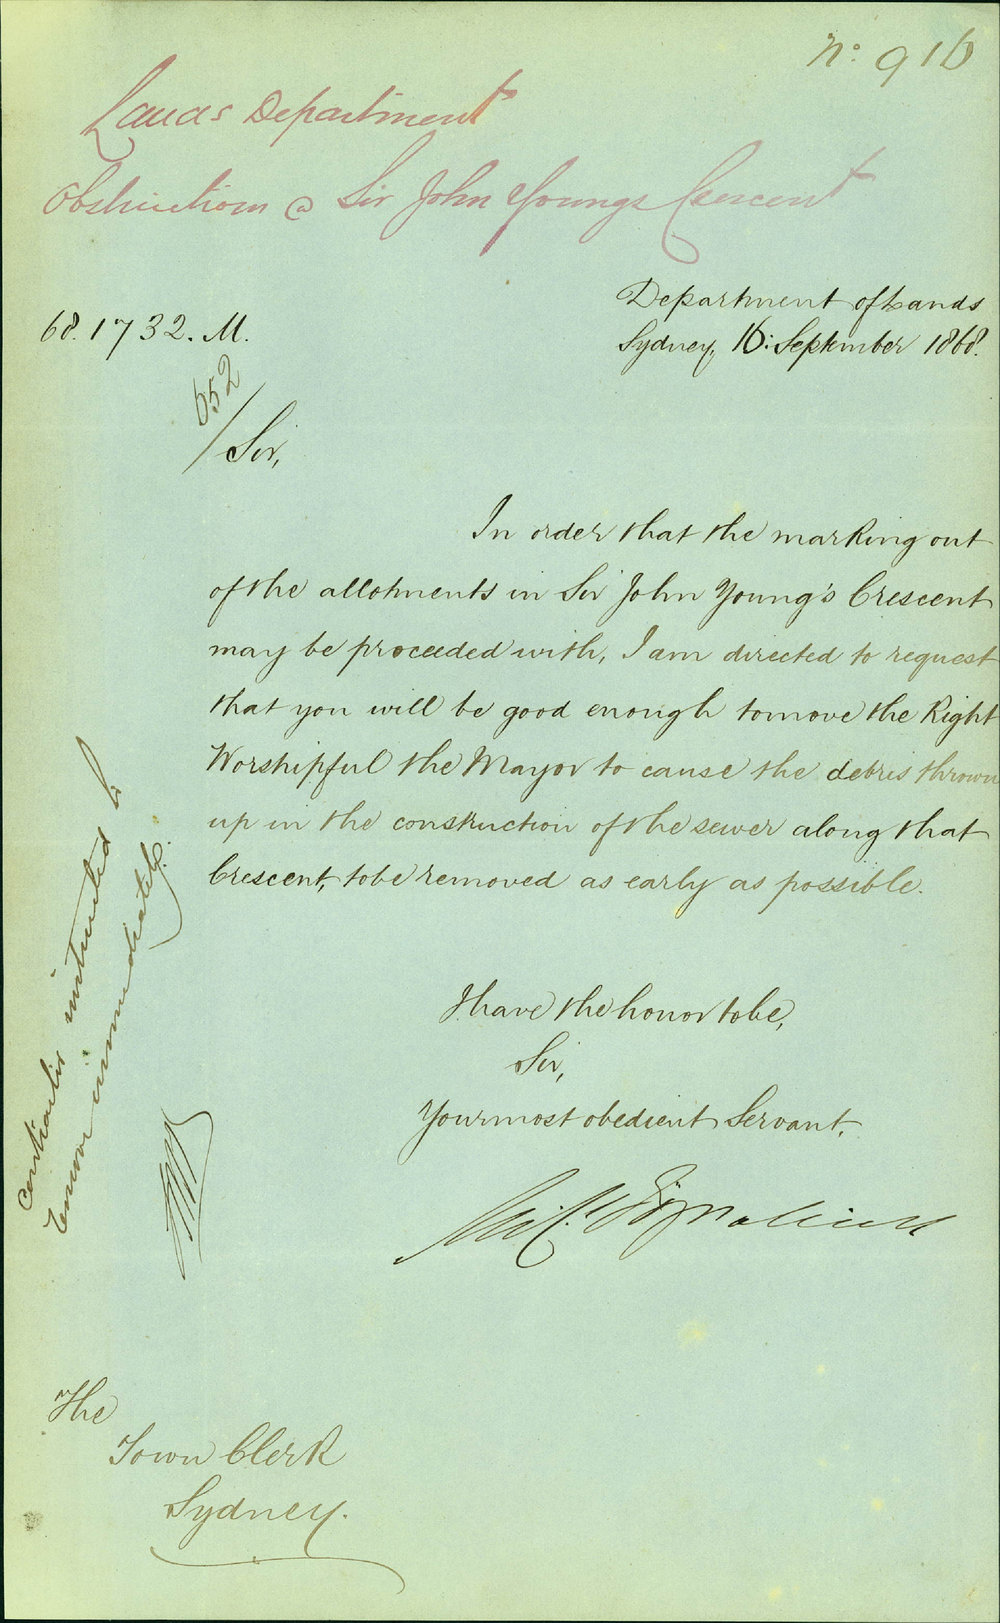 No. 916
Lands Department
Obstructions @ Sir John Youngs Crescent
Department of Lands
Sydney, 16: September 1868.
68.1732. M.
652
Sir,
In order that the marking out
of the allotments in Sir John Young's Crescent
may be proceeded with, I am directed to request
that you will be good enough to move the Right
Worshipful the Mayor to cause the debris thrown
up in the construction of the sewer along that
Crescent, to be removed as early as possible.
I have the honor to be,
Sir,
Your most obedient Servant,
Contractor instructed to
remove immediately.
The
Town Clerk
Sydney.